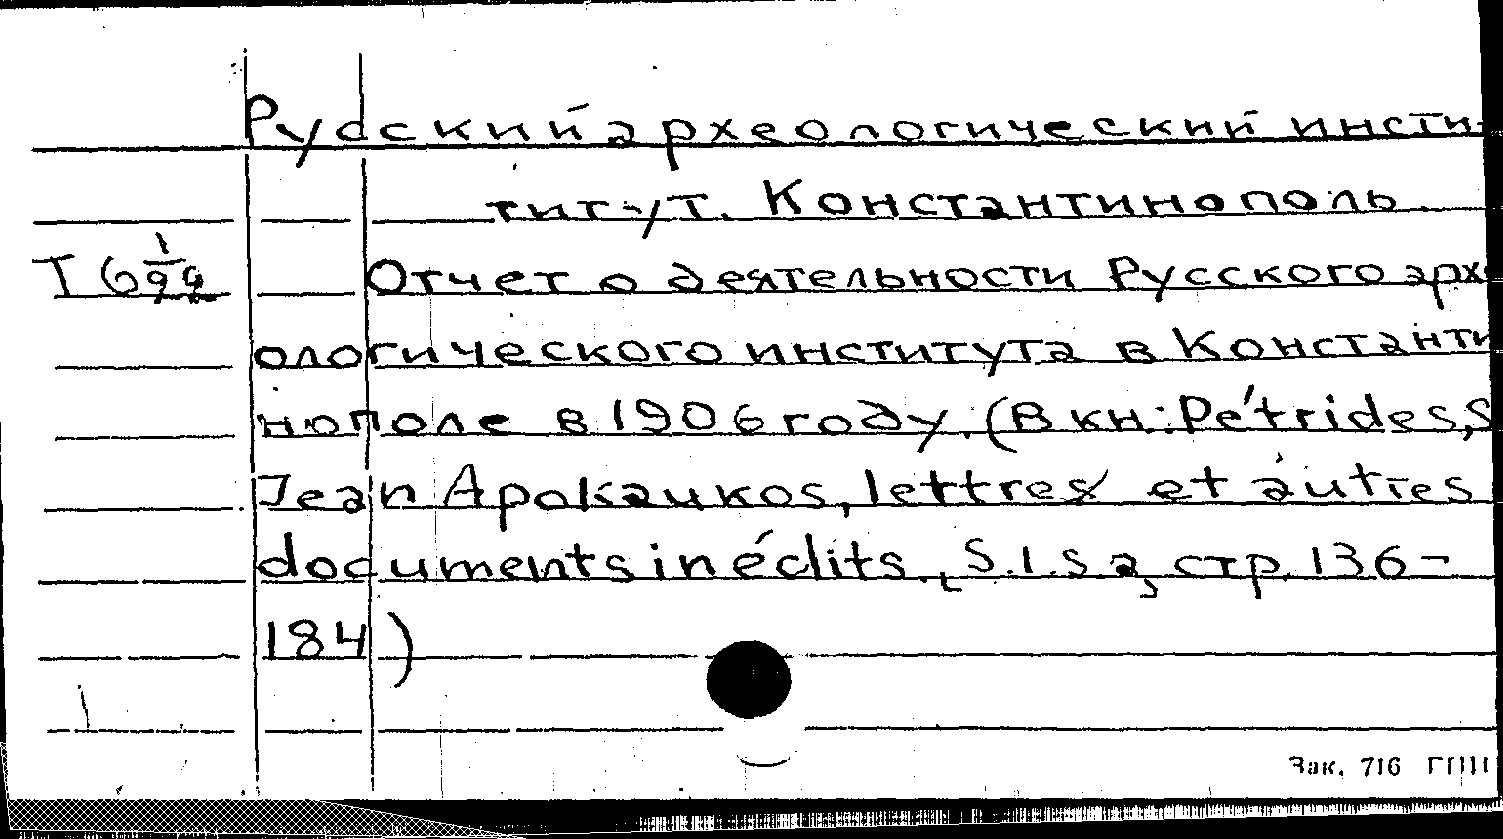 Русский археологический инсти-
титут. Константинополь.
T 6 1/99 Отчет о деятельности Русского архе
ологического института в Константи
нополе в 1906 году. (В кн.: Pétrides, S
Jean Apokaukos, lettres et autres
documents inédits., S.l.s a, стр. 136-
184)
Зак. 716